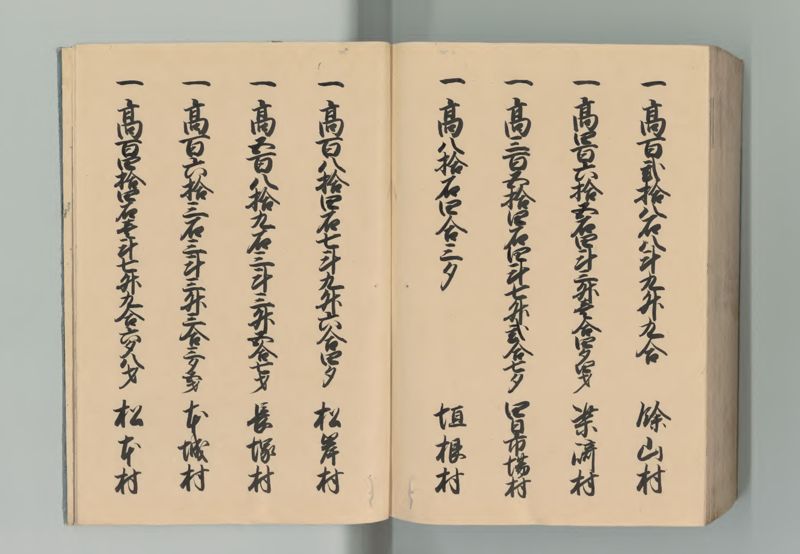 一高百弐拾八石八斗九升九合 餘山村
一高四百六拾五石四斗二升壱合四夕四才 柴崎村
一高三百五拾四石四斗七升弐合七夕 四日市場村
一高八拾石四合三夕 垣根村
一高百八拾四石七斗九升六合四夕 松岸村
一高五百八拾九石三斗三升五合七才 長塚村
一高百六拾三石三斗三升三合三夕 本城村
一高百四拾四石壱斗七升九合六夕八才 松本村